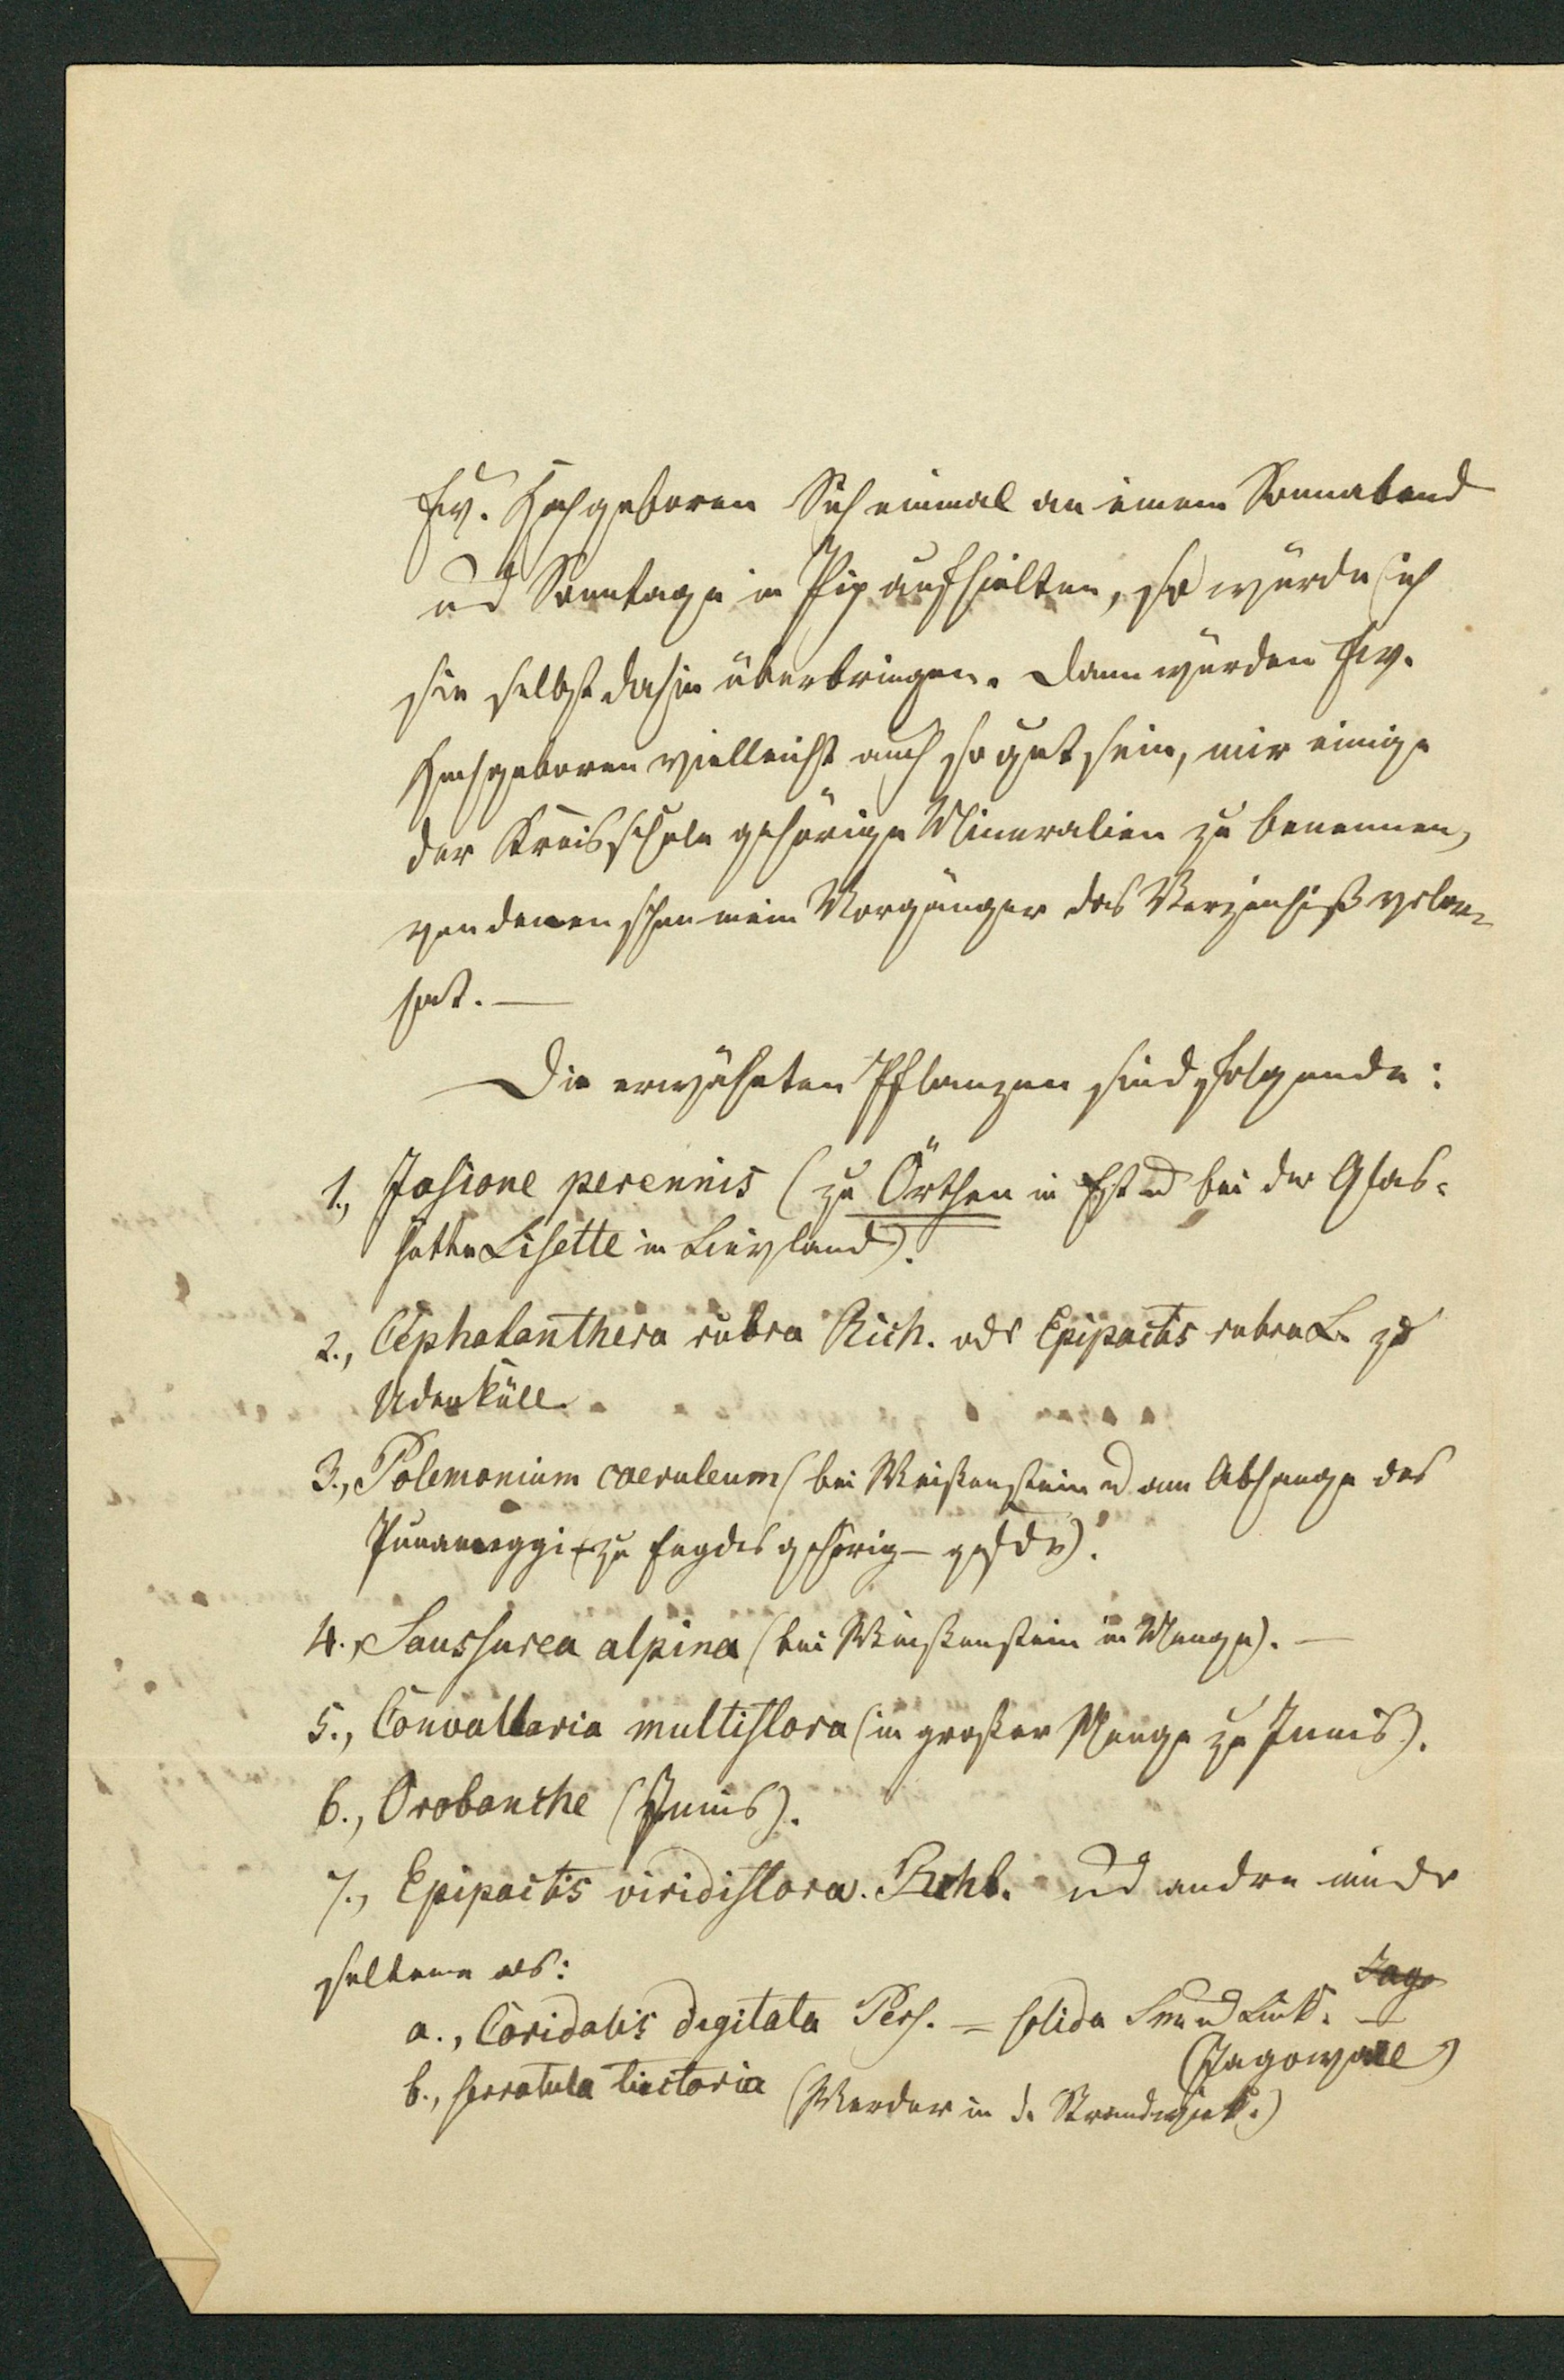 Ew. Hochgeboren Sich einmal an einem Sonnabend
und Sonntage in Piep aufhielten, so würde ich
sie selbst dahin überbringen. Dann würden Ew.
Hochgeboren vielleicht auch so gut sein, mir einige
der Kreisschule gehörige Mineralien zu benennen,
von denen schon mein Vorgänger das Verzeichniß verlor.
hat. —
Die erwähnten Pflanzen sind folgende:
1., Jasione perennis (zu Örthen in Est. u bei der Glas-
hütte Lisette in Livland).
2., Cephalanthera rubra Rich. oder Epipactis rubra L. zu
Udenküll.
3., Polemonium caeruleum (bei Weißenstein u am Abhange des
gehörig
4., Saussurea alpina (bei Weißenstein in Menge). —
5., Convallaria multiflora (in großer Menge zu Innis).
6., Orobanche (Innis).
7., Epipactis viridiflora. Rchb. und andre minder
seltene als:
a., Coridalis digitata Pers. = solida Sm und Link. Jago
(Jagowall)
b., Serratula tinctoria (Werder in d. Strandwiek.)